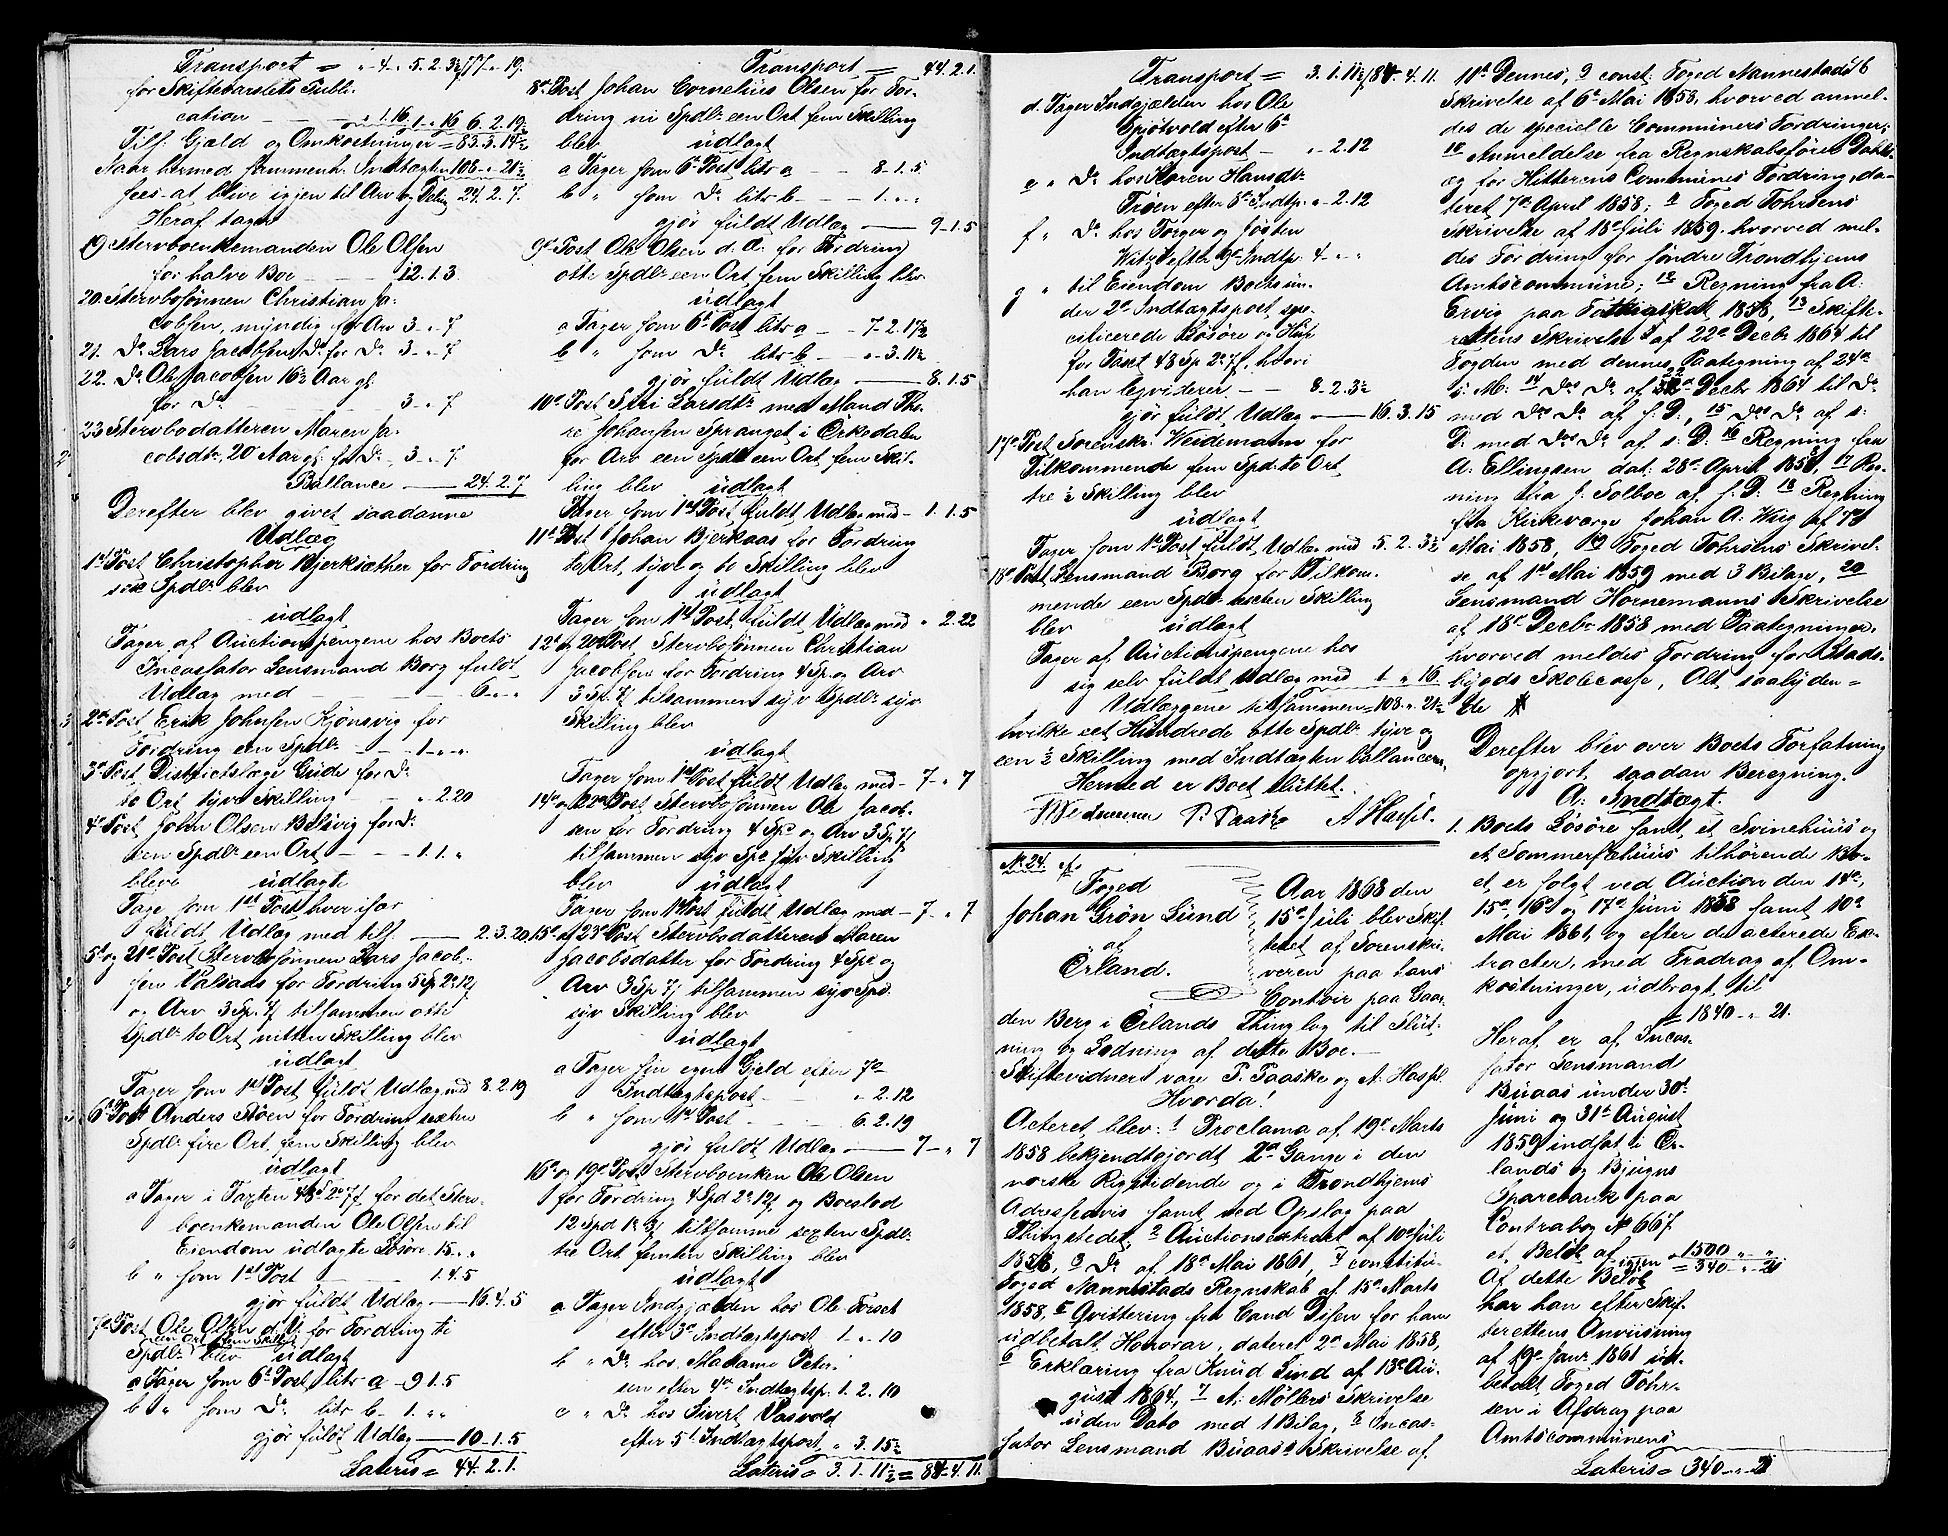 Transport = „ 4 „ 5. 2. 3½ 77 „ 19.
for Skiftevarslets Publi-
cation — — „ 1. 16. „ 1 „ 16 6. 2. 19½
Tils. Gjæld og Omkostninger = 83. 3. 14½
Naar hermed sammenh. Indtægten 108 „ 21½
sees at blive igjen til Arv og Deling 24. 2. 7.
Heraf tager
19 Stervboenkemanden Ole Olsen
for halve Boe — — 12. 1. 3.
20. Stervbosønnen Christian Ja-
cobsen, myndig for Arv 3 „ 7
21. Do Lars Jacobsen Do for Do 3 „ 7
22. Do Ole Jacobsen 16½ Aar gl.
for Do — — 3 „ 7
23 Stervbodatteren Maren Ja-
cobsdtr, 20 Aar gl. for Do 3 „ 7.
Ballance — 24. 2. 7
Derefter blev givet saadanne
Udlæg
1st Post Christophor Bjerksæther for Fordring
sex Spdlr blev
udlagt
Tager af Auctionspengene hos Boets
Incassator Lensmand Borg fuldt
Udlæg med — — 6 „ „
2den Post, Erik Johnsen Kjönsvig for
Fordring een Spdlr — — 1 „ „
3e Post Districtslæge Gude for Do
to Ort tyve Skilling — „ 2. 20
4e Post John Olsen Belsvig for Do
een Spdlr een Ort — — 1. 1. „
bleve udlagte
Tage som 1st Post hver især
fuldt Udlæg med tils. — 2. 3. 20
5te og 21de Post, Stervbosønnen Lars Jacob-
sen Valsads for Fordring 5 Sp 2. 12 s
og Arv 3 Sp. 7 s tilsammen otte
Spdlr to Ort nitten Skilling blev
udlagt
Tager som 1st Post fuldt Udlæg med 8. 2. 19
6te Post Anders Støen for Fordring sexten
Spdlr fire Ort fem Skilling blev
udlagt
a Tager i Taxten 48 Sp 2. 7 s. for det Sterv-
boenkemanden Ole Olsen til
Eiendom udlagte Løsøre 15 „ „
b „ som 1st Post — 1. 4. 5
gjør fuldt Udlæg — 16. 4. 5
7de Post, Ole Olsen d. Y. for Fordring ti
een Ort fem Skilling
Spdlr blev udlagt
a Tager som 6te Post, litr a — 9 1. 5
b „ som Do litr b — 1. „ „
gjør fuldt Udlæg — 10. 1. 5
Lateris = 44. 2. 1.
Transport = 44. 2. 1.
8de Post Johan Cornelius Olsen for For-
dring ni Spdlr een Ort fem Skilling
blev udlagt
a Tager som 6te Post litr a — 8. 1. 5
b „ som Do litr b — 1. „ „
gjør fuldt Udlæg — 9. 1. 5
9de Post Ole Olsen d. Æ. for Fordring
otte Spdlr een Ort fem Skilling blev
udlagt
a Tager som 6te Post litr a — 7. 2. 17½
b „ som Do litr b — „ 3. 11½
gjør fuldt Udlæg — 8. 1. 5
10de Post Siri Larsdtr med Mand Tho-
re Johansen Spranget i Orkedalen
for Arv een Spdlr een Ort fem Skil-
ling blev udlagt
Tager som 1st Post, fuldt Udlæg med — 1. 1. 5
11te Post Johan Bjerkaas for Fordring
to Ort, tyve og to Skilling blev
udlagt
Tager som 1st Post, fuldt Udlæg med „ 2. 22
12te og 20de Post, Stervbosønnen Christian
Jacobsen for Fordring 4 Sp. og Arv
3 Sp. 7 s tilsammen syv Spdlr syv
Skilling blev
udlagt
Tager som 1st Post fuldt Udlæg med — 7 „ 7
14de og 22de Post Stervbosønnen Ole Jacob-
sen for Fordring 4 Spd og Arv 3 Sp 7 s
tilsammen syv Spd syv Skilling
blev udlagt
Tager som 1st Post fuldt Udlæg med — 7 „ 7
15de og 23de Post Stervbodatteren Maren
Jacobsdatter for Fordring 4 Spd og
Arv 3 Sp 7 s tilsammen syv Spd.
syv Skilling blev
udlagt
a Tager sin egen Gjeld efter 7de
Indtægtspost — „ 2. 12
b „ som 1st Post — — 6. 2. 19
gjør fuldt Udlæg — 7 „ 7
16de og 19de Post Stervboenken Ole Olsen
for Fordring 4 Spd 2. 12 s og Boeslod
12 Spd 1. 3 s tilsammen sexten Spdlr
tre Ort femten Skilling blev
udlagt
a Tager Indgjælden hos Ole Forset
efter 3de Indtægtspost 1 „ 10
b „ Do hos Madame Peter-
sen efter 4de Indtægtsp. 1. 2. 10
c „ Do hos Sivert Vasvold
efter 5te Indtægtspost „ 3. 15½
Lateris = 3. 1. 11½ = 84. 4. 11.
Transport = 3. 1. 11½ 84. 4. 11.
d. Tager Indgjælden hos Ole
Spjøtvold efter 6te
Indtægtspost — „ 2. 12
e „ Do hos Karen Hansdtr
Trøen efter 8de Indtp. „ 2. 12
f „ Do hos Torger og Josten
Witz efter 9de Indtp. 4 „ „
g „ til Eiendom Boets un-
der 2de Indtægtspost spe-
cificerede Løsøre og Huse
for Taxt 48 Sp 2. 7 s, hvori
han leqviderer — — 8. 2. 3½
gjør fuldt Udlæg — 16. 3. 15
17de Post Sorenskr. Weidemann for
Tilkommende fem Spd. to Ort
tre ½ Skilling blev
udlagt
Tager som 1st Post fuldt Udlæg med 5. 2. 3½
18de Post, Lensmand Borg for Tilkom-
mende een Spdlr sexten Skilling
blev udlagt
Tager af Auctionspengene hos
sig selv fuldt Udlæg med 1 „ 16.
Udlæggene tilsammen = 108 „ 21½
hvilke eet Hundrede otte Spdlr tyve og
een ½ Skilling med Indtægten ballancere.
Hermed er Boet sluttet.
Wedemann P. Paaske A Hassel.
No 24. ef.
Foged
Johan Grön Lund
af
Örland.
Aar 1868 den
15de Juli blev Skif-
teret af Sorenskri-
veren paa hans
Contoir paa Gaar-
den Berg i Ørlands Thinglag til Slut-
ning og Lodning af dette Boe. —
Skiftevidner vare P. Paaske og A. Hassel.
Hvorda!
Acteret blev: 1 Proclama af 19de Marts
1858 bekjendtgjordt 2de Gange i den
norske Rigstidende og i Trondhjems
Adresseavis samt ved Opslag paa
Thingstedet, 2 Auctionsextract af 10de Juli
1858, 3 Do af 18de Mai 1861, 4 constitu-
Foged Nannestads Regnskab af 15de Marts
1858, 5 Qvittering fra Cand Disen for ham
udbetalt Honorar, dateret 2de Mai 1858,
6 Erklæring fra Knud Lind af 13de Au-
gust 1864, 7 A. Møllers Skrivelse
uden Dato med 1 Bilag, 8 Incas-
sator Lensmand Buaas's Skrivelse af
11te Dennes, 9 const: Foged Nannestads 16
Skrivelse af 6te Mai 1858, hvorved anmel-
des de specielle Communers Fordringer;
10 Anmeldelse fra Regnskabsfører Dahl
og for Hitterens Communes Fordring, da-
teret 7de April 1858; 11 Foged Fohrsens
Skrivelse af 18de Juli 1859. hvorved mel-
des Fordring for søndre Trondhjems
Amtscommune; 12 Regning fra A.
Ervig paa Fattigskat 1858, 13 Skifte-
rettens Skrivelse af 22de Decbr 1864 til
Fogden med dennes Paategning af 24de
s: M: 14 Des Do af 22de Decbr 1864 til Do
med Des Do af s. D:, 15 Des Do af s:
D: med Des Do af s: D: 16 Regning fra
A. Ellingsen dat: 28de April 1858, 17 Reg-
ning fra J. Solboe af s. D: 18 Regning
fra Kirkeværge Johan A: Wiig af 7de
Mai 1858, 19 Foged Fohrsens Skrivel-
se af 1st Mai 1859 med 3 Bilage, 20
Lensmand Hornemanns Skrivelse
af 18de Decbr 1858 med Paategninger,
hvorved meldes Fordring for Stads-
bygds Skolecasse, Alt saalyden-
de #
Derefter blev over Boets Forfatning
opgjort saadan Beregning.
A: Indtægt.
1. Boets Løsøre samt et Svinehuus og
et Sommerfæhuus tilhørende Bo-
et er solgt ved Auction den 14de,
15de, 16de og 17de Juni 1858 samt 10de
Mai 1861, og efter de acterede Ex-
tracter, med Fradrag af Om-
kostninger, udbragt til
= 1840 „ 21.
Heraf er af Incas-
sator Lensmand
Buaas under 30te
Juni og 31te August
1859 indsat i Ør-
lands og Bjugns
Sparebank paa
Contrabog No 667
et Beløb af — 1500 „ „
igjen = 340 „ 21
Af dette Beløb
har han efter Skif-
terettens Anviisning
af 19de Janr 1861 ud-
betalt Foged Fohr-
sen i Afdrag paa
Amtscommunens
Lateris = 340 „ 21